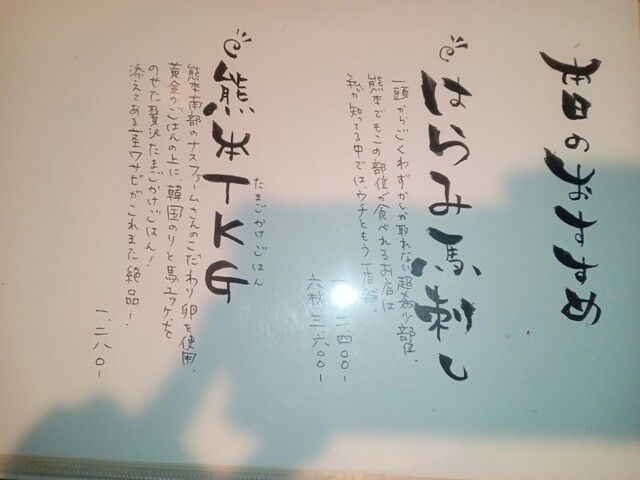 本日のおすすめ
はらみ馬刺し
一頭からごくわずかしか取れない超希少部位。
熊本でもこの部位が食べれるお店は
私が知ってる中では、ウチともう一店舗。
二.四〇〇-
六枚 三.六〇〇-
熊本TKG
たまごかけごはん
熊本南部のナスファームさんのこだわり卵を使用。
黄金のごはんの上に、韓国のりと馬ユッケを
のせた贅沢たまごかけごはん!
添えてある生ワサビがこれまた絶品!
一.二八〇-